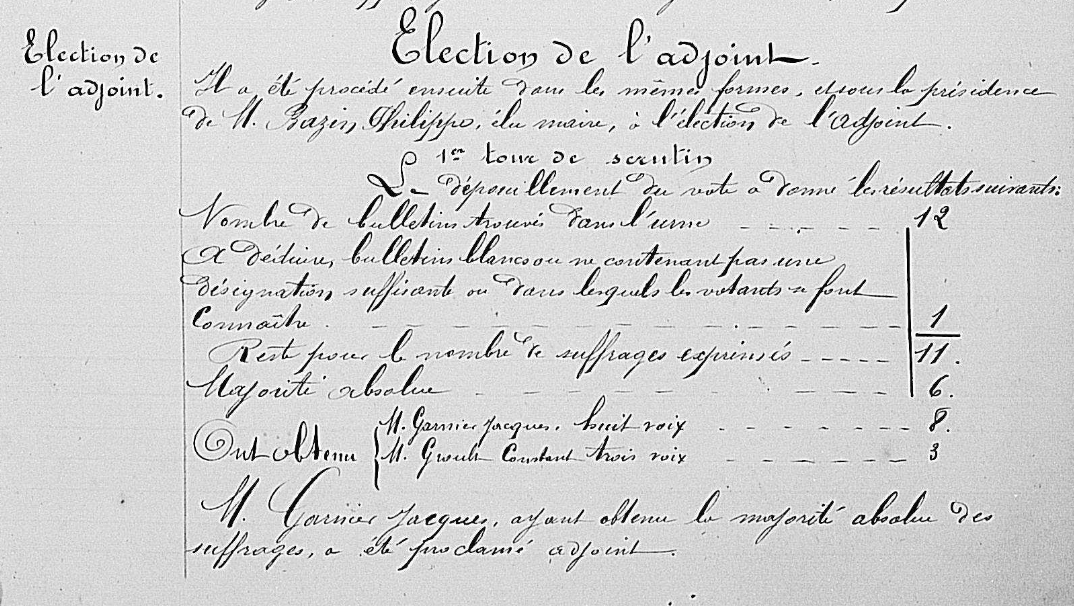 Election de
l'adjoint.
Election de l'adjoint.
Il a été procédé ensuite dans les mêmes formes, et sous la présidence
de M. Bazin Philippe, élu maire, à l'élection de l'adjoint.
1er tour de scrutin
Le dépouillement du vote a donné les résultats suivants:
Nombre de bulletins trouvés dans l'urne 12
A déduire, bulletins blancs ou ne contenant pas une
désignation suffisante ou dans lesquels les votants se font
connaître. 1
Reste pour le nombre de suffrages exprimés 11.
Majorité absolue 6.
Ont obtenu { M. Garnier Jacques, huit voix 8.
M. Groult Constant trois voix 3
M. Garnier Jacques, ayant obtenu la majorité absolue des
suffrages, a été proclamé adjoint.